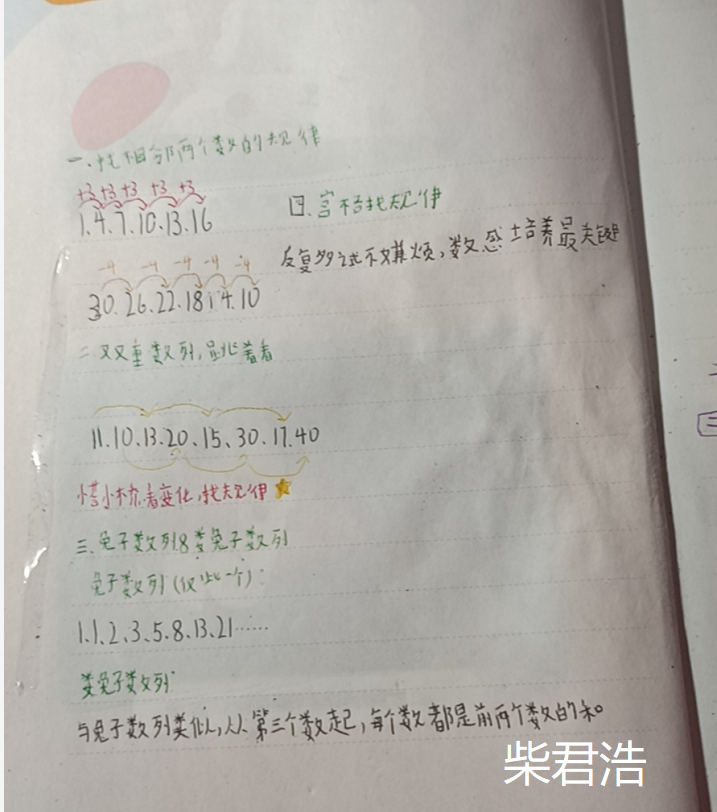 一、找相邻两个数的规律
+3 +3 +3 +3 +3
1.4.7.10.13.16
-4 -4 -4 -4 -4
30.26.22.18.14.10
二双重数列,跳着看
11.10.13.20、15、30.17.40
搭小桥.看变化,找规律
三、兔子数列&类兔子数列
兔子数列(仅此一个):
1.1.2、3、5、8、13、21······
类兔子数列:
与兔子数列类似,从第三个数起,每个数都是前两个数的和。
四.宫格找规律
反复多试不嫌烦,数感培养最关键
柴君浩